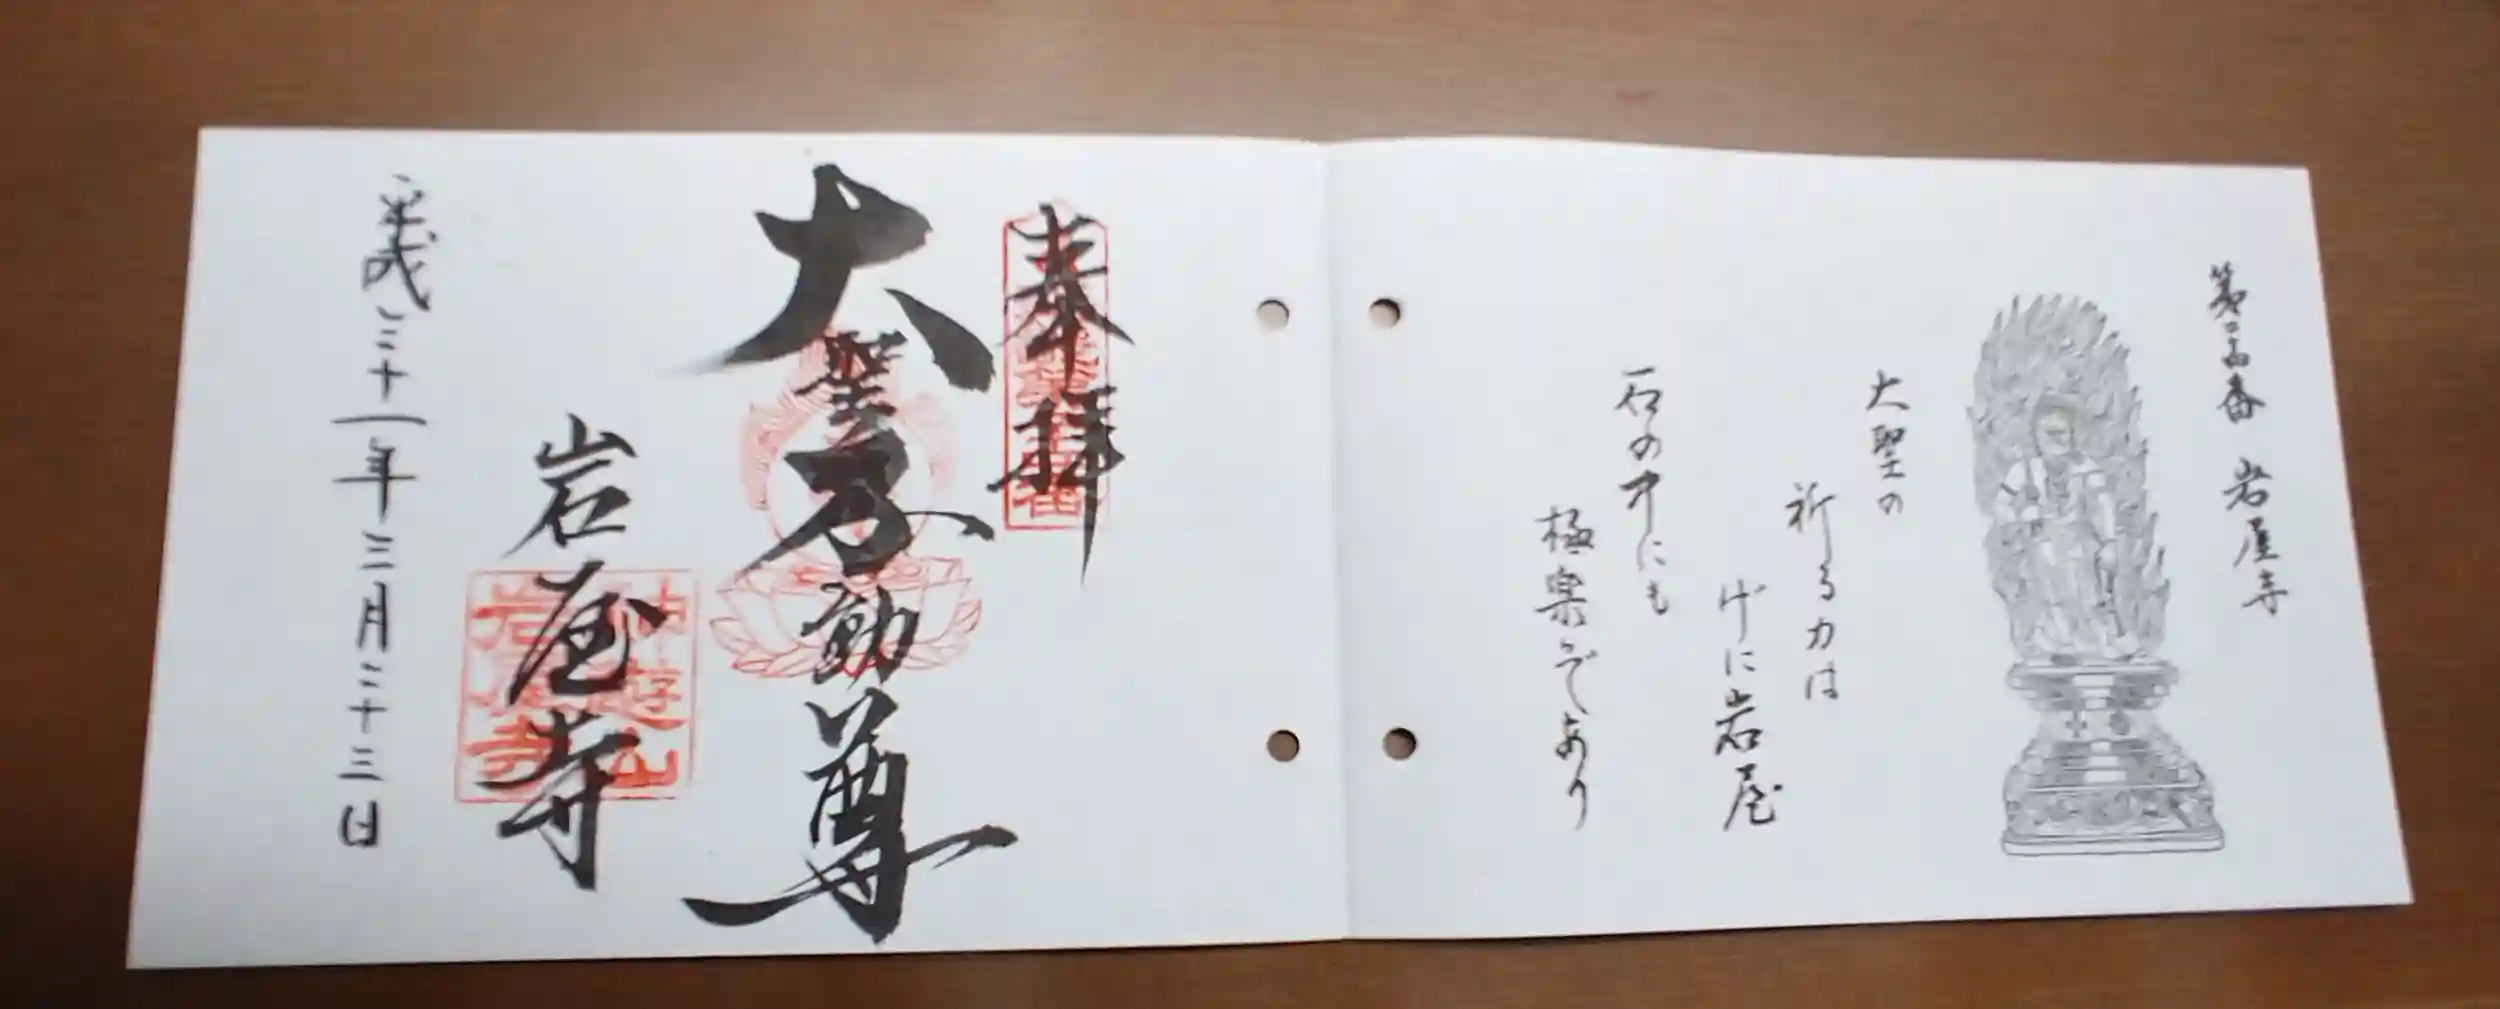 第二十四番 岩屋寺
大聖の
祈る力は
げに岩屋
石の中にも
極楽ぞあり
奉拝
大聖不動尊
岩屋寺
神遊山
岩屋寺
平成三十一年三月二十三日